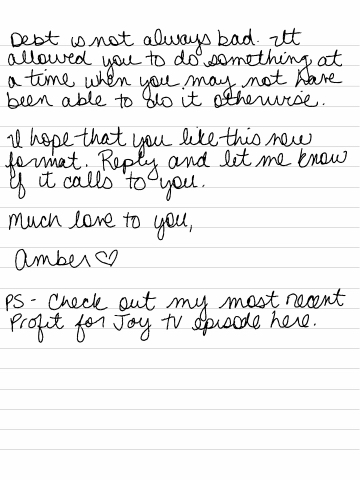 Debt is not always bad. It
allowed you to do something at
a time when you may not have
been able to do it otherwise.
I hope that you like this new
format. Reply and let me know
if it calls to you.
Much love to you,
Amber♡
PS - Check out my most recent
Profit for Joy TV episode here.